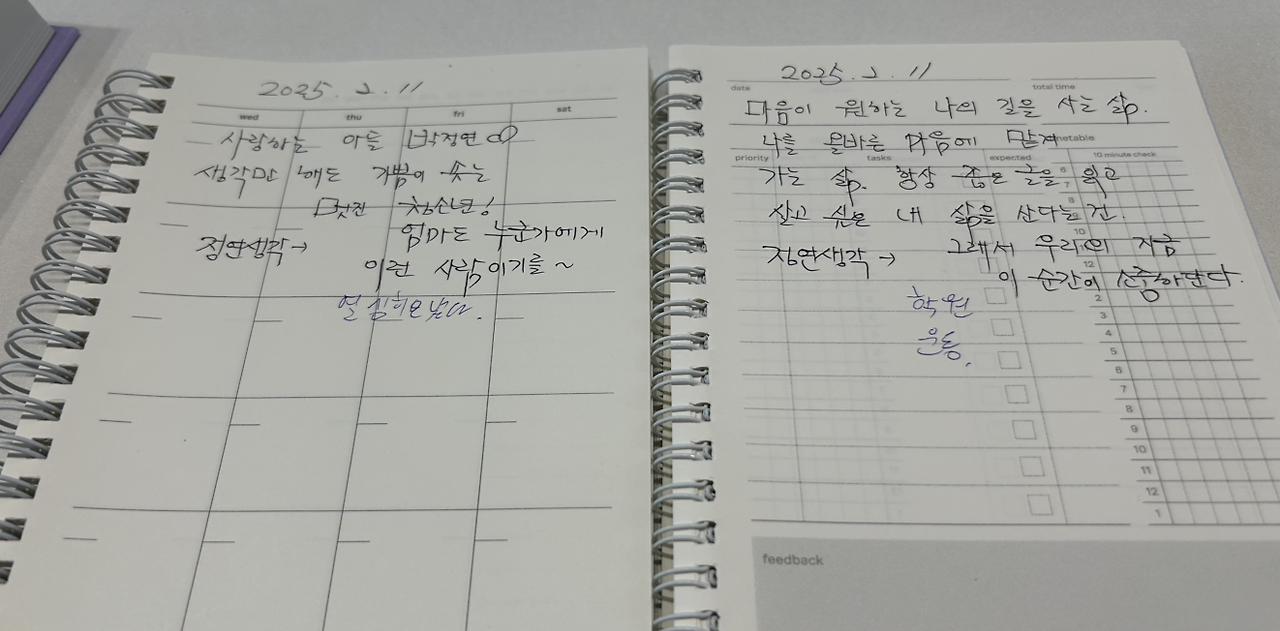 2025. 2. 11
wed thu fri sat
사랑하는 아들 박정연
생각만 해도 기쁨이 솟는
멋진 청소년!
정연생각→ 엄마도 누군가에게
이런 사람이기를 ~
2025. 2. 11
date total time
마음이 원하는 나의 길을 사는 삶.
나를 올바른 마음에 맡겨
priority tasks expected 10 minute check
가는 삶. 항상 좋은 글을 읽고
살고 싶은 내 삶을 산다는 건.
정연생각→ 그래서 우리의 지금
이 순간이 소중하단다.
학원
운동.
6
7
8
9
10
11
12
1
2
3
4
5
6
7
8
9
10
11
12
1
feedback